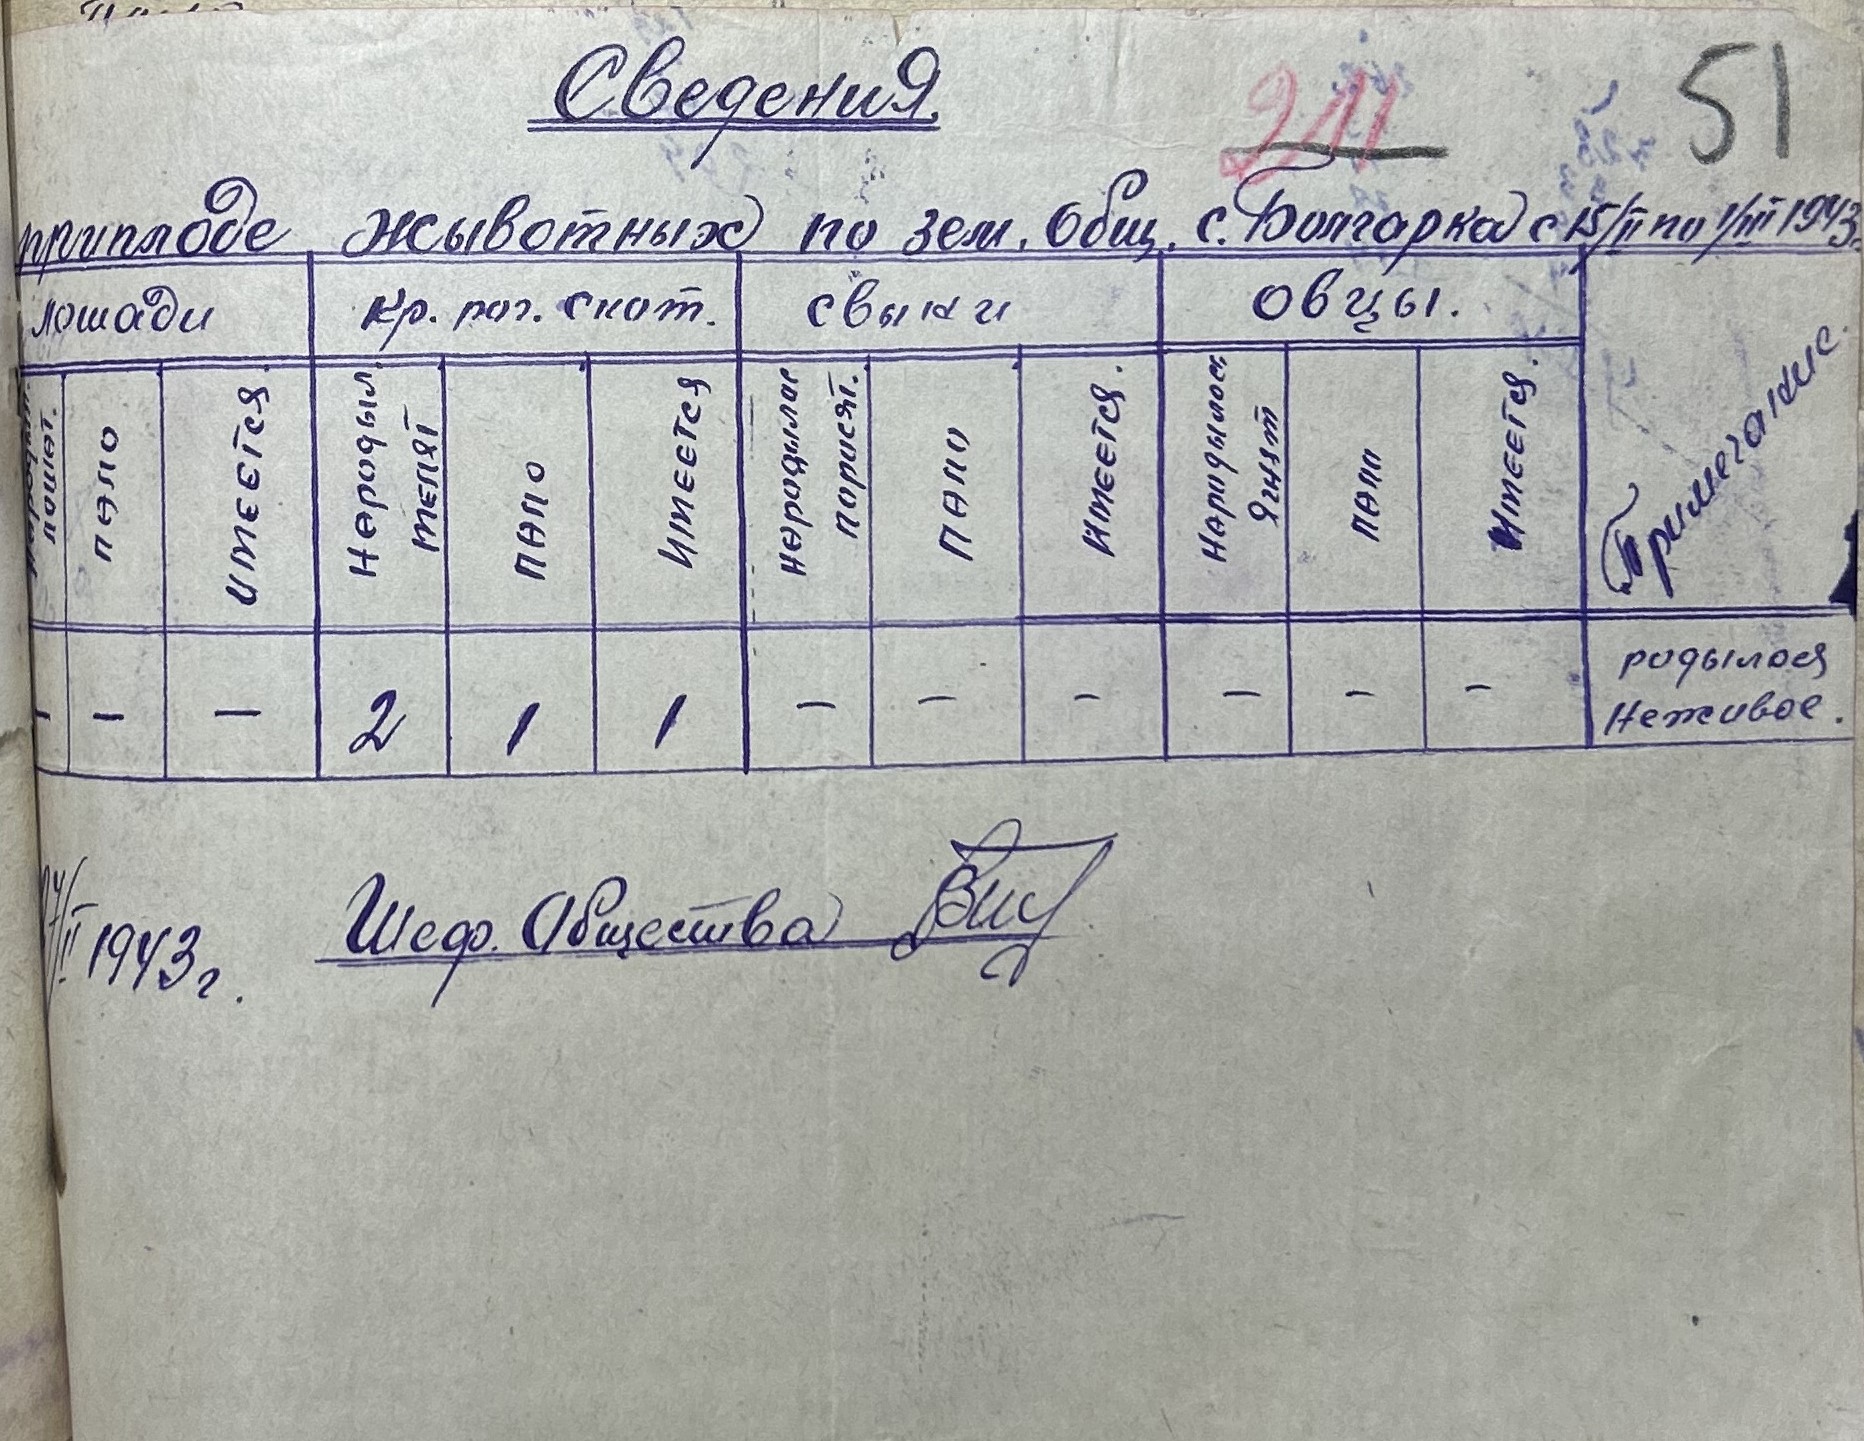 Сведения.
211
51
приплоде жывотных по зем. Общ. с. Болгарка с 15/II по 1/III 1943г.
лошади кр. рог. скот. свыни овцы. Примечание.
лошат. пало имеется. Народыл. телят пало имеется Народылос поросят. пало имеется. Народылос. Ягнят пало имеется.
– – – 2 1 1 – – – – – – родылося
неживое.
27/II 1943г. Шеф. Общества